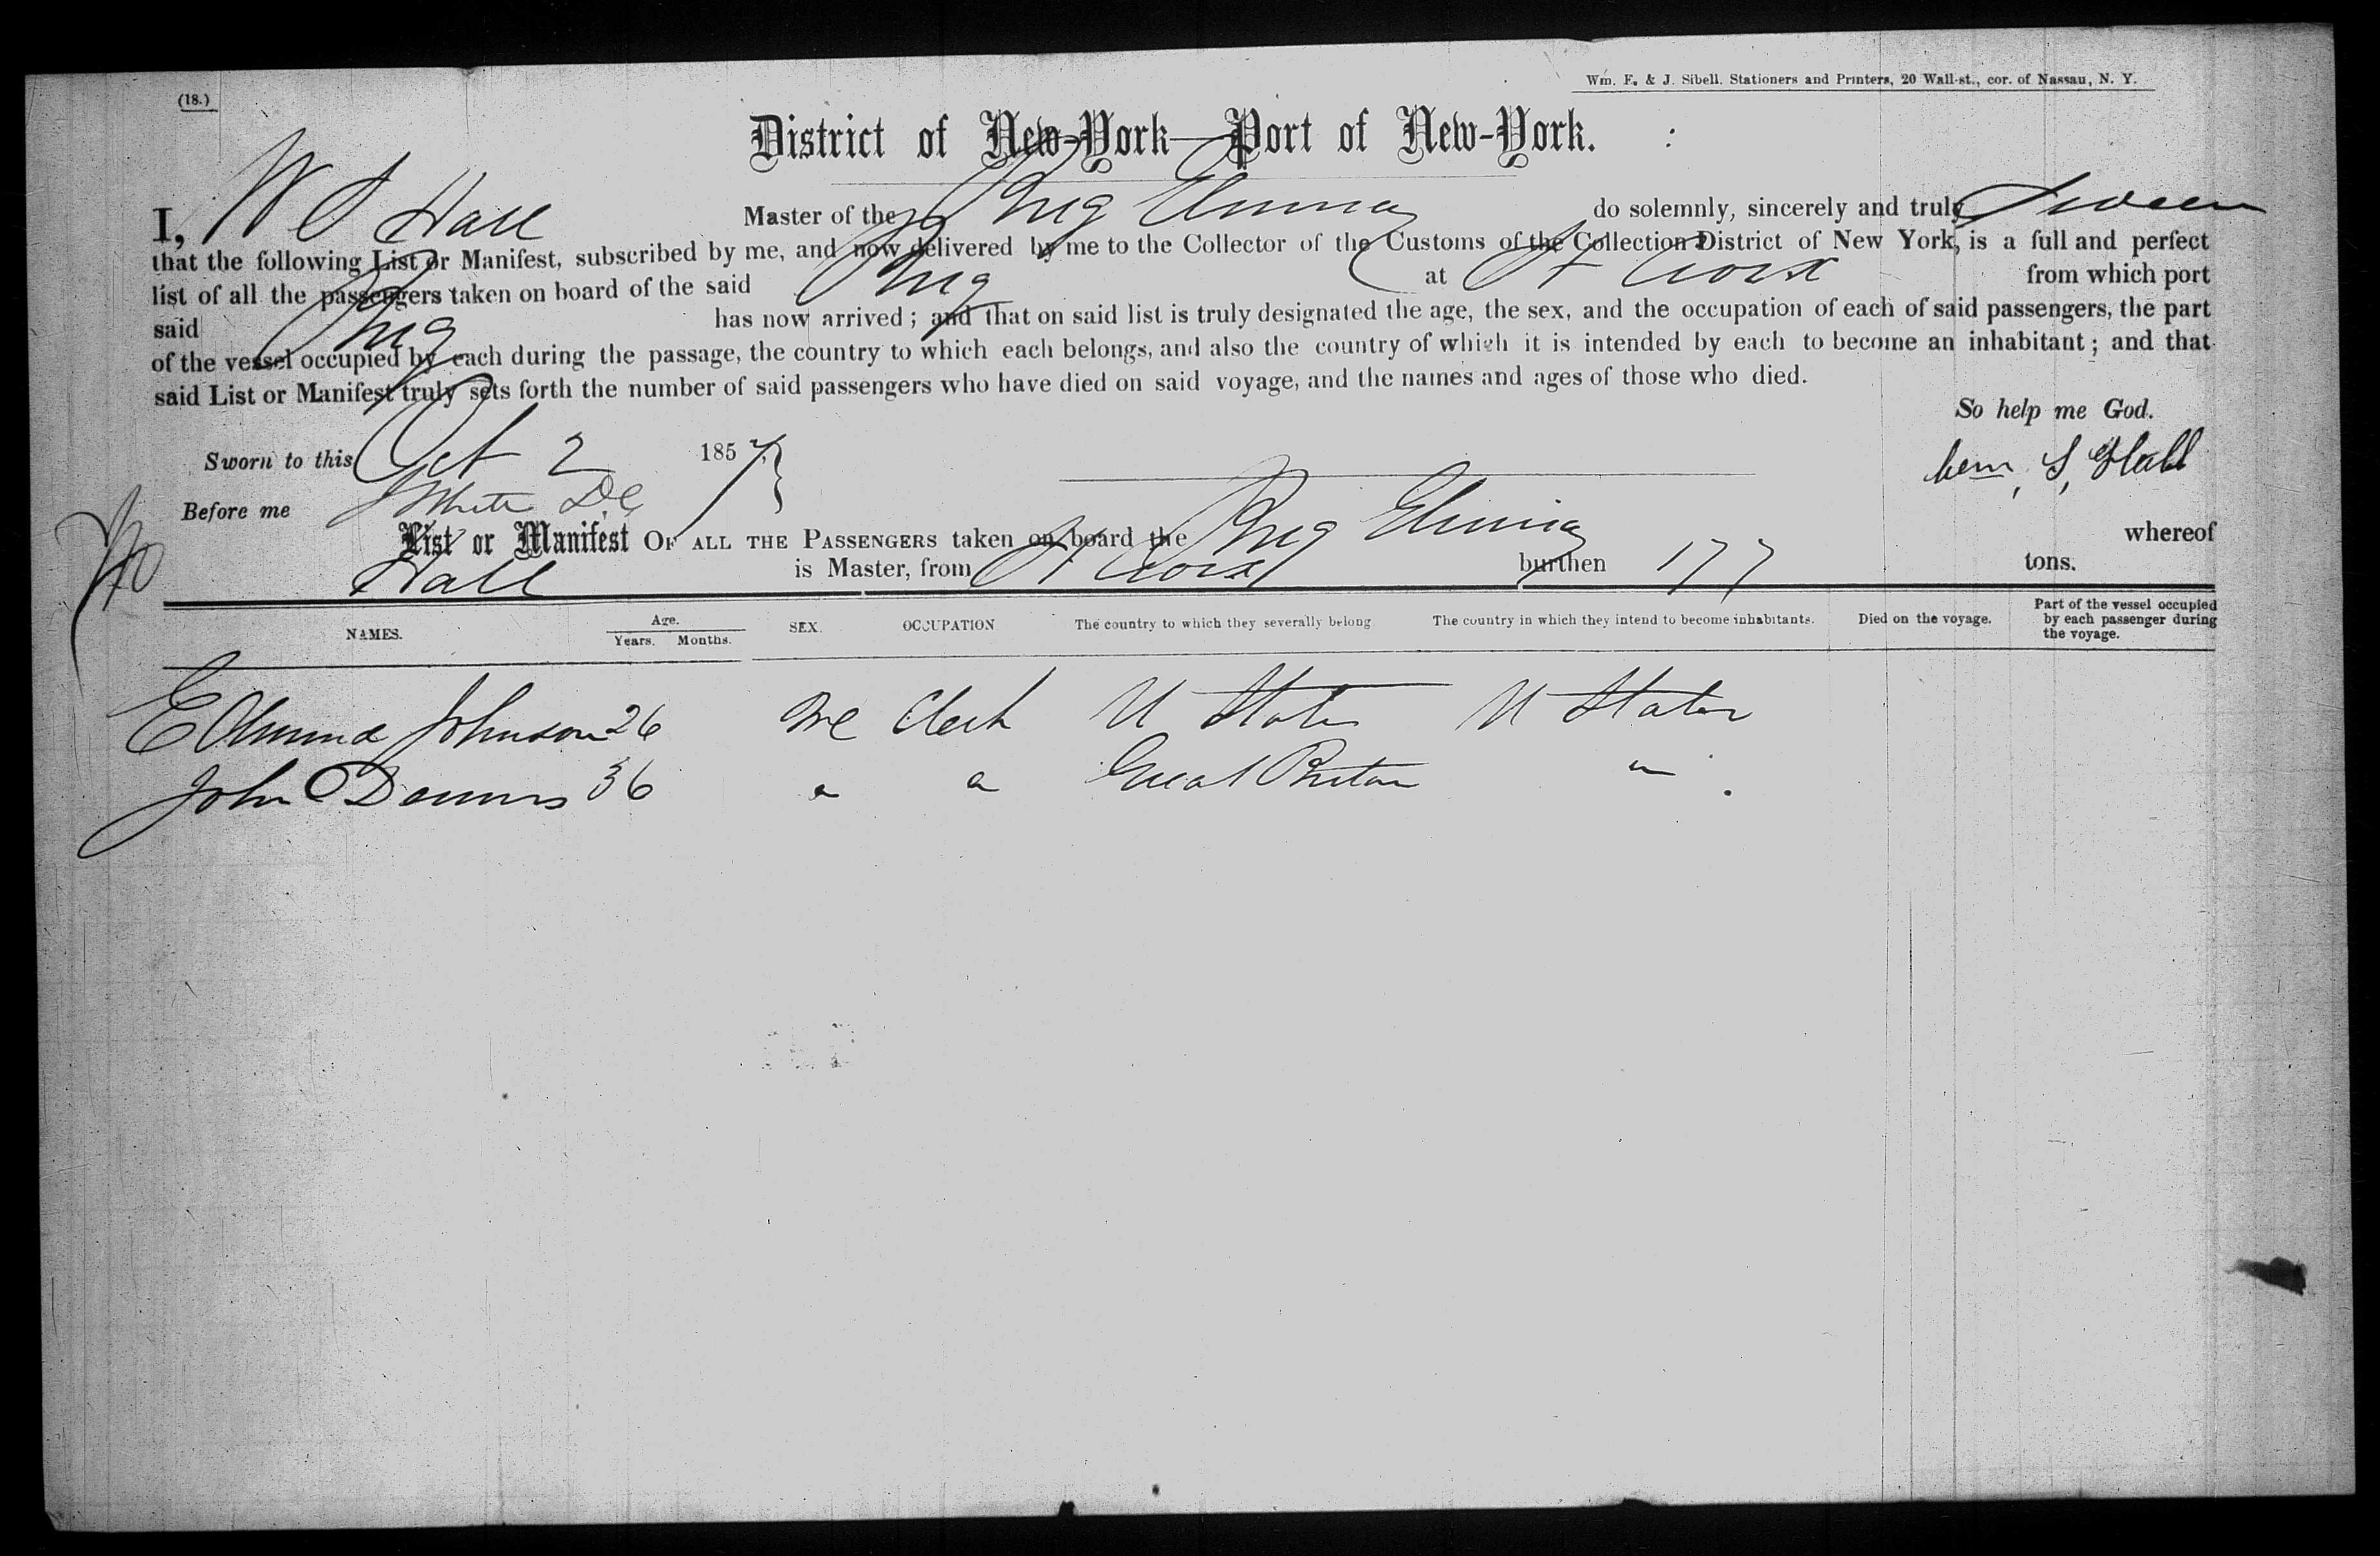 (18.)
Wm. E. & J. Sibell. Stationers and Printers, 20 Wall-st., cor. of Nassau, N. Y.
District of New-York—Port of New-York.
I, W S Hall Master of the Brig do solemnly, sincerely and truly Swear
that the following List or Manifest, subscribed by me, and now delivered by me to the Collector of the Customs of the Collection District of New York, is a full and perfect
list of all the passengers taken on board of the said Brig at St Croix from which port
said Brig has now arrived; and that on said list is truly designated the age, the sex, and the occupation of each of said passengers, the part
of the vessel occupied by each during the passage, the country to which each belongs, and also the country of which it is intended by each to become an inhabitant; and that
said List or Manifest truly sets forth the number of said passengers who have died on said voyage, and the names and ages of those who died.
So help me God.
Sworn to this Oct 2 1857
Wm. S, Hall
Before me White D.C.
List or Manifest OF ALL THE PASSENGERS taken on board the Brig whereof
Hall is Master, from St Croix burthen 177 tons.
NAMES. Age. Years. Months. SEX. OCCUPATION The country to which they severally belong The country in which they intend to become inhabitants. Died on the voyage. Part of the vessel occupied by each passenger during the voyage.
Edmund Johnson 26 Me Clerk U States U States
John Dennis 36 " " Great Britan "